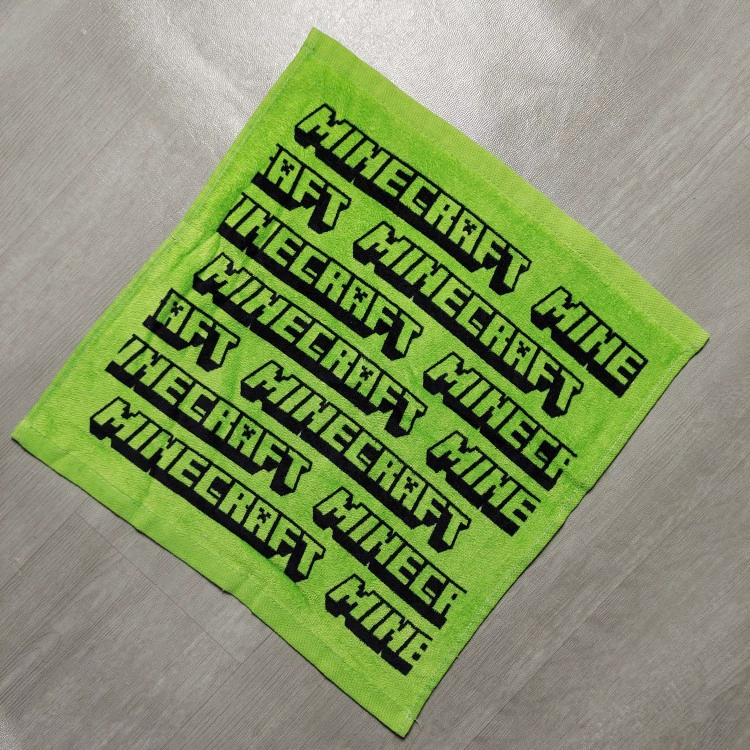 MINECRAFT MINE
AFT MINECRAFT
INECRAFT MINECR
MINECRAFT MINE
AFT MINECRAFT
INECRAFT MINECR
MINECRAFT MINE